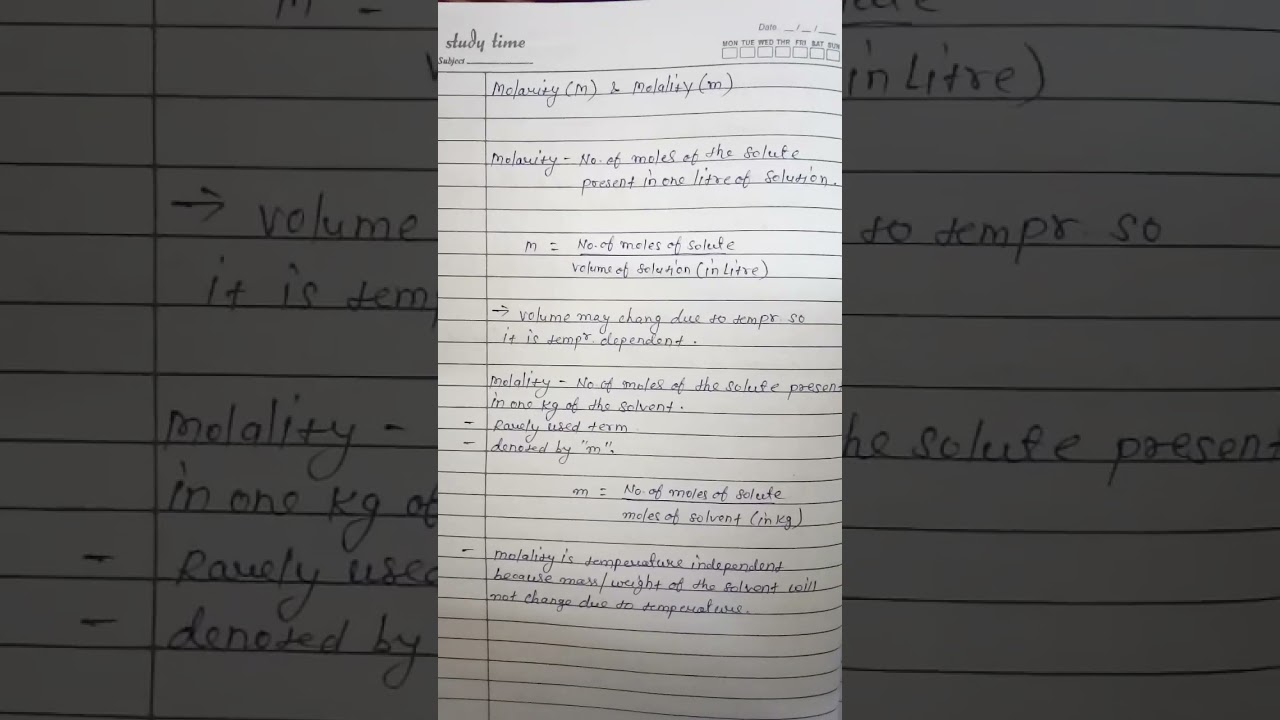 study time
Date __/__/__
MON TUE WED THR FRI SAT SUN
Subject
Molarity (M) & Molality (m)
Molarity - No. of moles of the solute
present in one litre of solution.
m = No. of moles of solute
volume of solution (in Litre)
→ volume may chang due to tempr. so
it is tempr. dependent.
Molality - No. of moles of the solute present
in one kg of the solvent.
- Rarely used term
- denoted by "m".
m = No. of moles of solute
moles of solvent (in kg)
- Molality is temperature independent
because mass/weight of the solvent will
not change due to temperature.
in Litre)
→ volume
to tempr. so
it is temp
Molality -
he solute present
in one kg of
- Rarely used
- denoted by